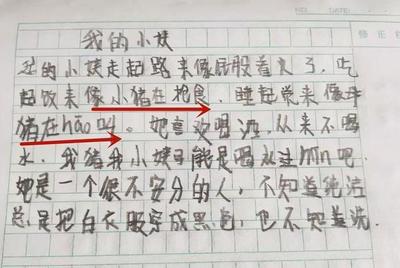 NO. DATE
我的小姨
我的小姨走起路来像屁股着火了,吃
起饭来像小猪在抢食。睡起觉来像
猪在hāo叫。她喜欢喝酒,从来不喝
水。我猜我小姨可能是喝酒过min吧.
她是一个很不安分的人,不知道纯洁
总是把白衣服穿成黑色,也不知道洗.